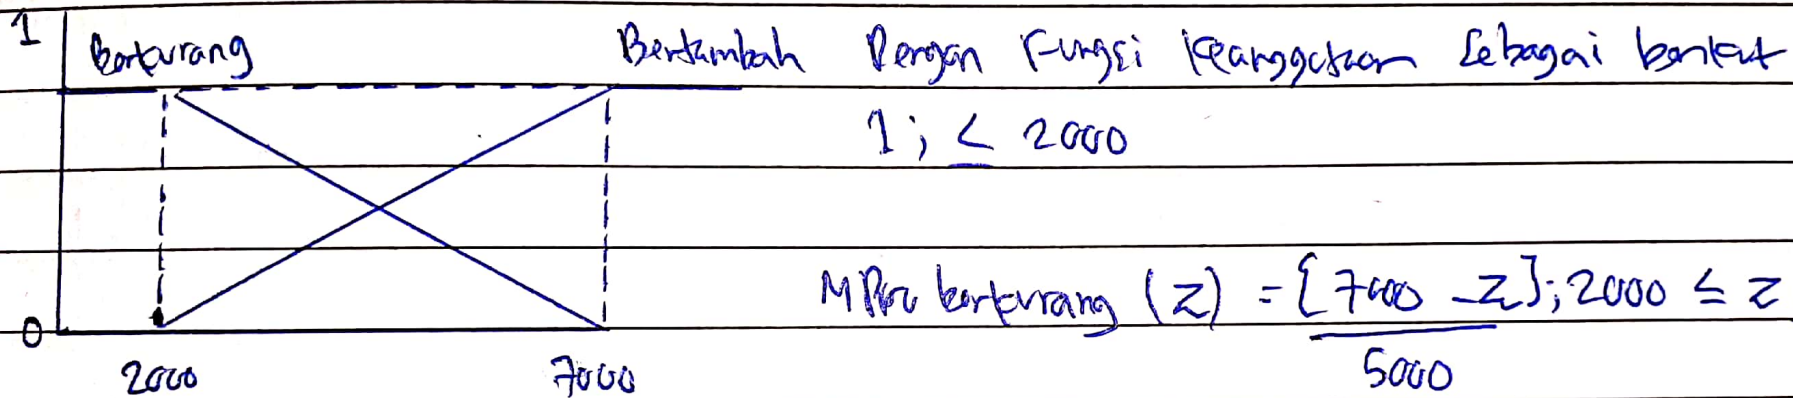 1
Berkurang Bertambah Dengan Fungsi Keanggotaan Sebagai berikut
1; ≤ 2000
M Pro berkurang (z) = {7000 - z}; 2000 ≤ z
5000
0
2000 7000